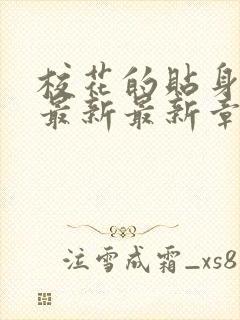 校花的贴身
最新最新章
注雪成霜_xs8